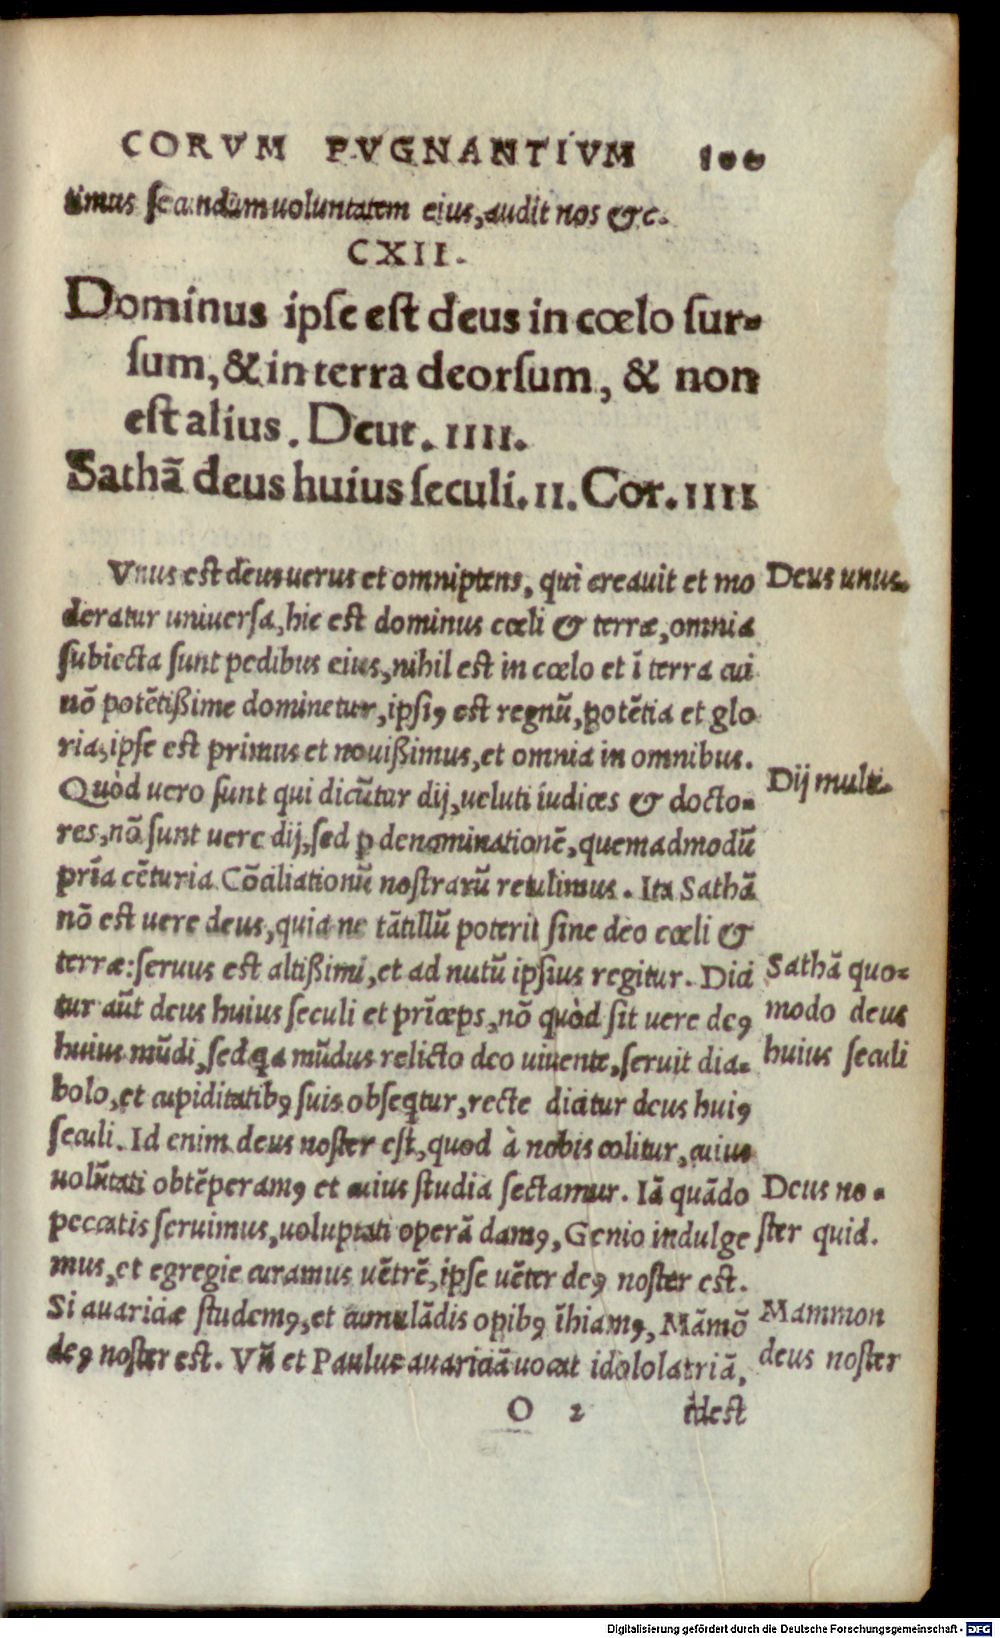 CORVM PVGNANTIVM 106
timus secundum uoluntatem eius, audit nos &c.
CXII.
Dominus ipse est deus in cœlo sur-
sum, & in terra deorsum, & non
est alius. Deut. IIII.
Sathā deus huius seculi. II. Cor. IIII
Vnus est deus uerus et omniptens, qui creauit et mo
deratur uniuersa, hic est dominus cœli & terræ, omnia
subiecta sunt pedibus eius, nihil est in cœlo et ī terra cui
nō potētißime dominetur, ipsiꝰ est regnū, ꝑotētia et glo
ria, ipse est primus et nouißimus, et omnia in omnibus.
Quòd uero sunt qui dicūtur dij, ueluti iudices & docto-
res, nō sunt uere dij, sed ꝑ denominationē, quemadmodū
prīa cēturia Cōciliationū nostrarū retulimus. Ita Sathā
nō est uere deus, quia ne tātillū poterit sine deo cœli &
terræ: seruus est altißimi, et ad nutū ipsius regitur. Dici
tur aūt deus huius seculi et prīceps, nō quòd sit uere deꝰ
huius mūdi, sed qa mūdus relicto deo uiuente, seruit dia-
bolo, et cupiditatibꝰ suis obseqtur, recte dicitur deus huiꝰ
seculi. Id enim deus noster est, quod à nobis colitur, cuius
uolūtati obtēperamꝰ et cuius studia sectamur. Iā quādo
peccatis seruimus, uoluptati operā damꝰ, Genio indulge
mus, et egregie curamus uētrē, ipse uēter deꝰ noster est.
Si auariciæ studemꝰ, et cumulādis opibꝰ īhiamꝰ, Māmō
deꝰ noster est. Vñ et Paulus auariciā uocat idololatriā,
O 2 idest
Deus unus.
Dij multi.
Sathā quo-
modo deus
huius seculi
Deus no-
ster quid.
Mammon
deus noster
Digitalisierung gefördert durch die Deutsche Forschungsgemeinschaft - DFG